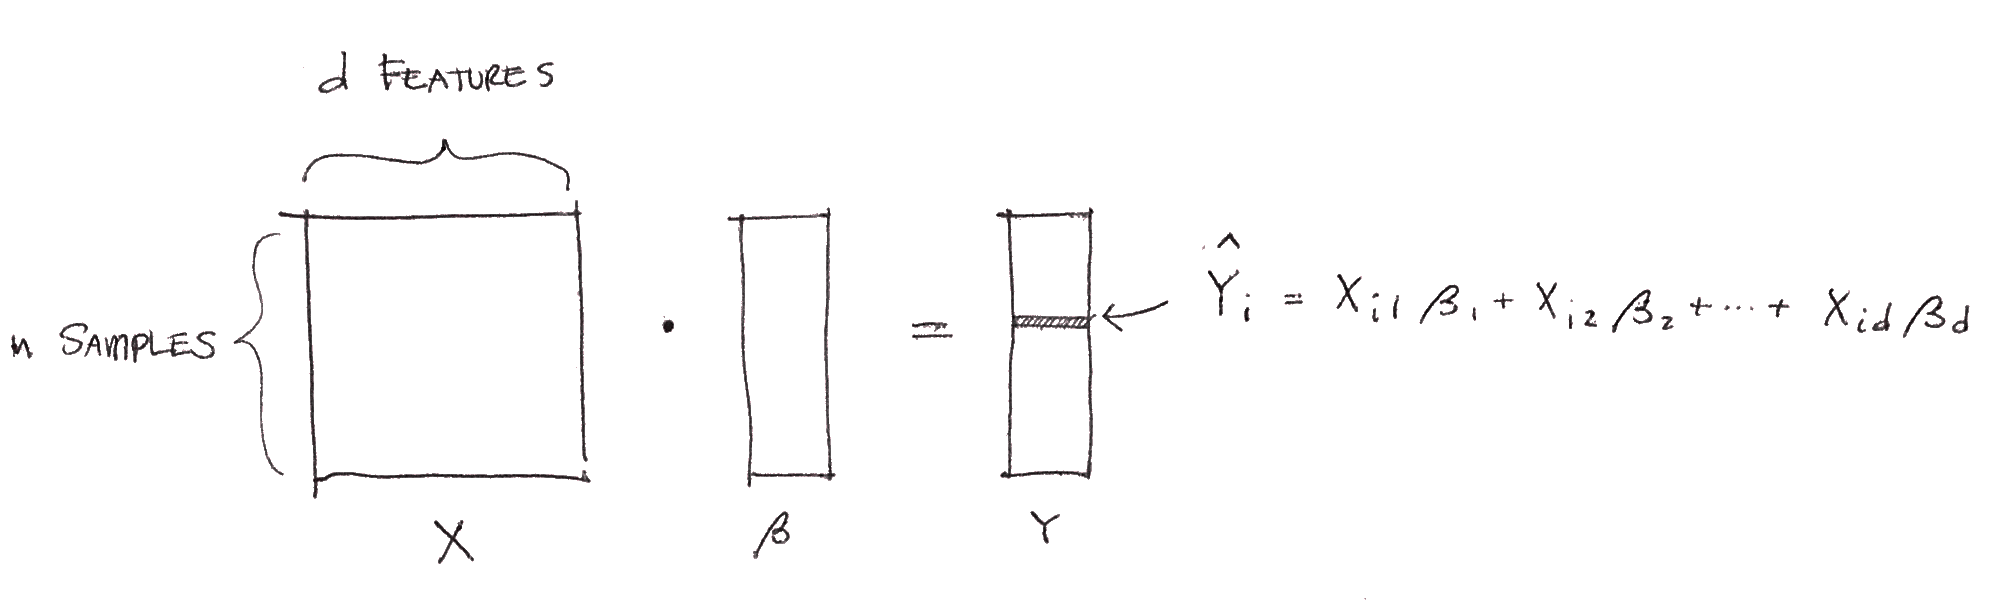 d FEATURES
n SAMPLES
· = Ŷi = Xi1 β1 + Xi2 β2 + ... + Xid βd
X β Y